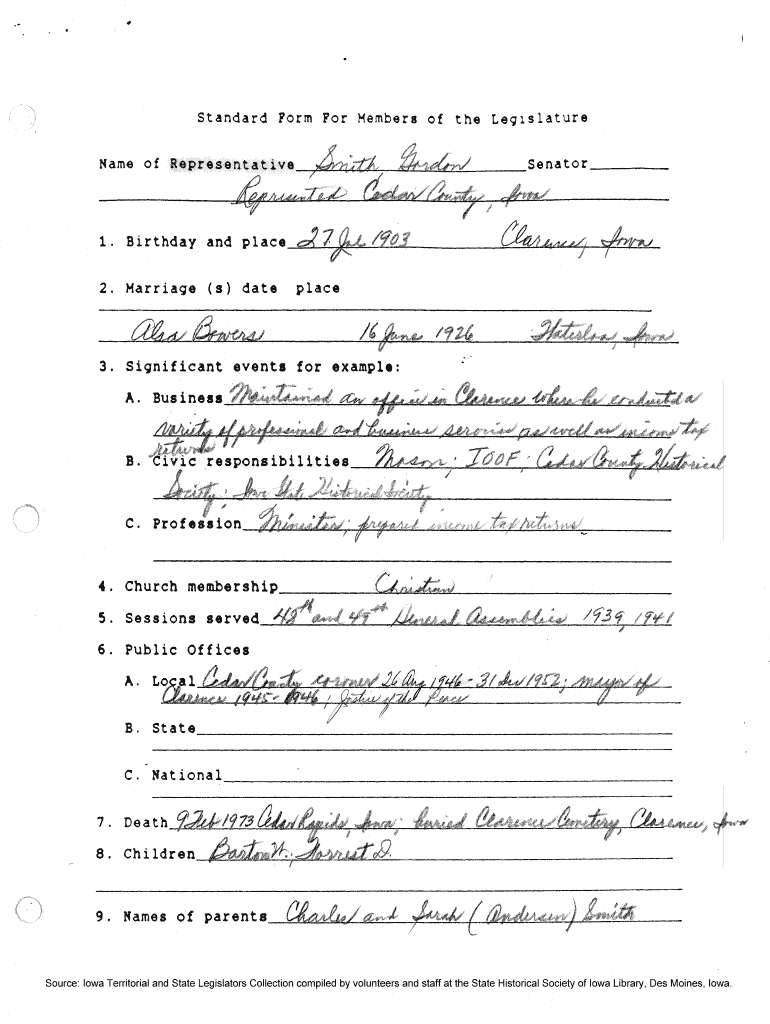 Standard Form For Members of the Legislature
Name of Representative Smith, Gordon Senator
Represented Cedar County, Iowa
1. Birthday and place 27 Jul 1903 Clarence, Iowa
2. Marriage (s) date place
Alsa Bowers 16 June 1926 Waterloo, Iowa
3. Significant events for example:
A. Business Maintained an office in Clarence where he conducted a
variety of professional and business services as well as income tax
returns
B. Civic responsibilities Mason; IOOF; Cedar County Historical
Society; Iowa State Historical Society
C. Profession Minister; prepared income tax returns
4. Church membership Christian
5. Sessions served 48th and 49th General Assemblies 1939, 1941
6. Public Offices
A. Local Cedar County coroner 26 Aug 1946 - 31 Dec 1952; mayor of
Clarence 1945-1946; Justice of the Peace
B. State
C. National
7. Death 9 Feb 1973 Cedar Rapids, Iowa; buried Clarence Cemetery, Clarence, Iowa
8. Children Barton W.; Forrest D.
9. Names of parents Charles and Sarah (Andersen) Smith
Source: Iowa Territorial and State Legislators Collection compiled by volunteers and staff at the State Historical Society of Iowa Library, Des Moines, Iowa.